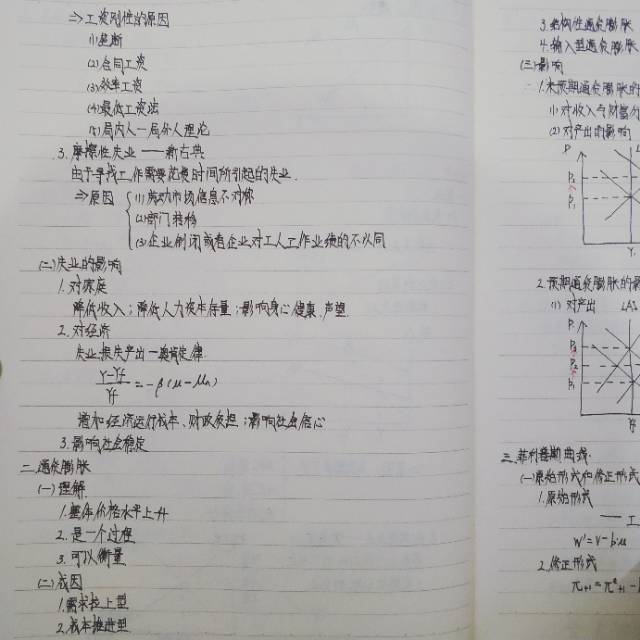 ⇒工资刚性的原因
(1)垄断
(2)合同工资
(3)效率工资
(4)最低工资法
(5)局内人—局外人理论
3.摩擦性失业 —— 新古典
由于寻找工作需要花费时间所引起的失业.
⇒原因 (1)劳动市场信息不对称
(2)部门转移
(3)企业倒闭或者企业对工人工作业绩的不认同
(二)失业的影响
1.对家庭
降低收入;降低人力资本存量;影响身心健康.声望
2.对经济
失业损失产出—奥肯定律
Y-Yf/Yf=-β(u-un)
增加经济运行成本、财政负担;影响社会信心
3.影响社会稳定
二.通货膨胀
(一)理解
1.整体价格水平上升
2.是一个过程
3.可以衡量
(二)成因
1.需求拉上型
2.成本推进型
3.结构性通货膨胀
4.输入型通货膨胀
(三)影响
1.未预期通货膨胀的
(1)对收入与财富
(2)对产出的影响
P
P2
P1
Y1
2.预期通货膨胀的
(1)对产出
LAS
P
P3
P2
P1
Yf
三.菲利普斯曲线
(一)原始形式和修正形式
1.原始形式
W'=r-b·u
2.修正形式